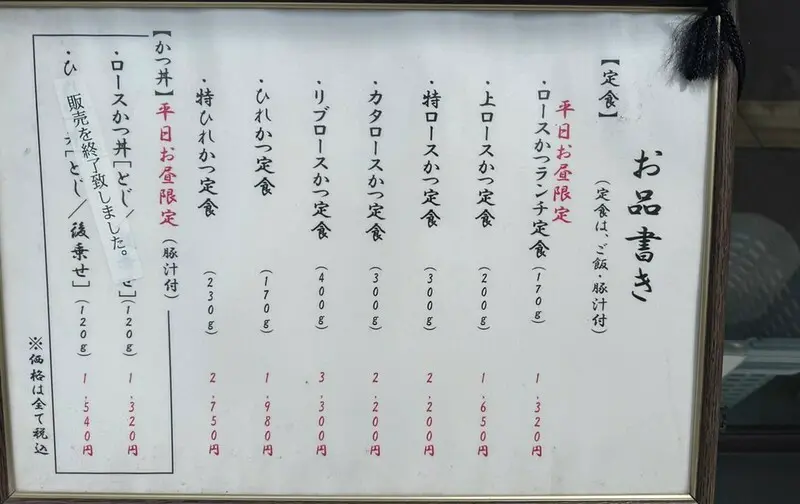 お品書き
【定食】
(定食は、ご飯・豚汁付)
平日お昼限定
・ロースかつランチ定食 (170g) 1,320円
・上ロースかつ定食 (200g) 1,650円
・特ロースかつ定食 (300g) 2,200円
・カタロースかつ定食 (300g) 2,200円
・リブロースかつ定食 (400g) 3,300円
・ひれかつ定食 (170g) 1,980円
・特ひれかつ定食 (230g) 2,750円
【かつ丼】平日お昼限定 (豚汁付)
・ロースかつ丼[とじ/ せ] (120g) 1,320円
・ひ [とじ/後乗せ] (120g) 1,540円
販売を終了致しました。
※価格は全て税込